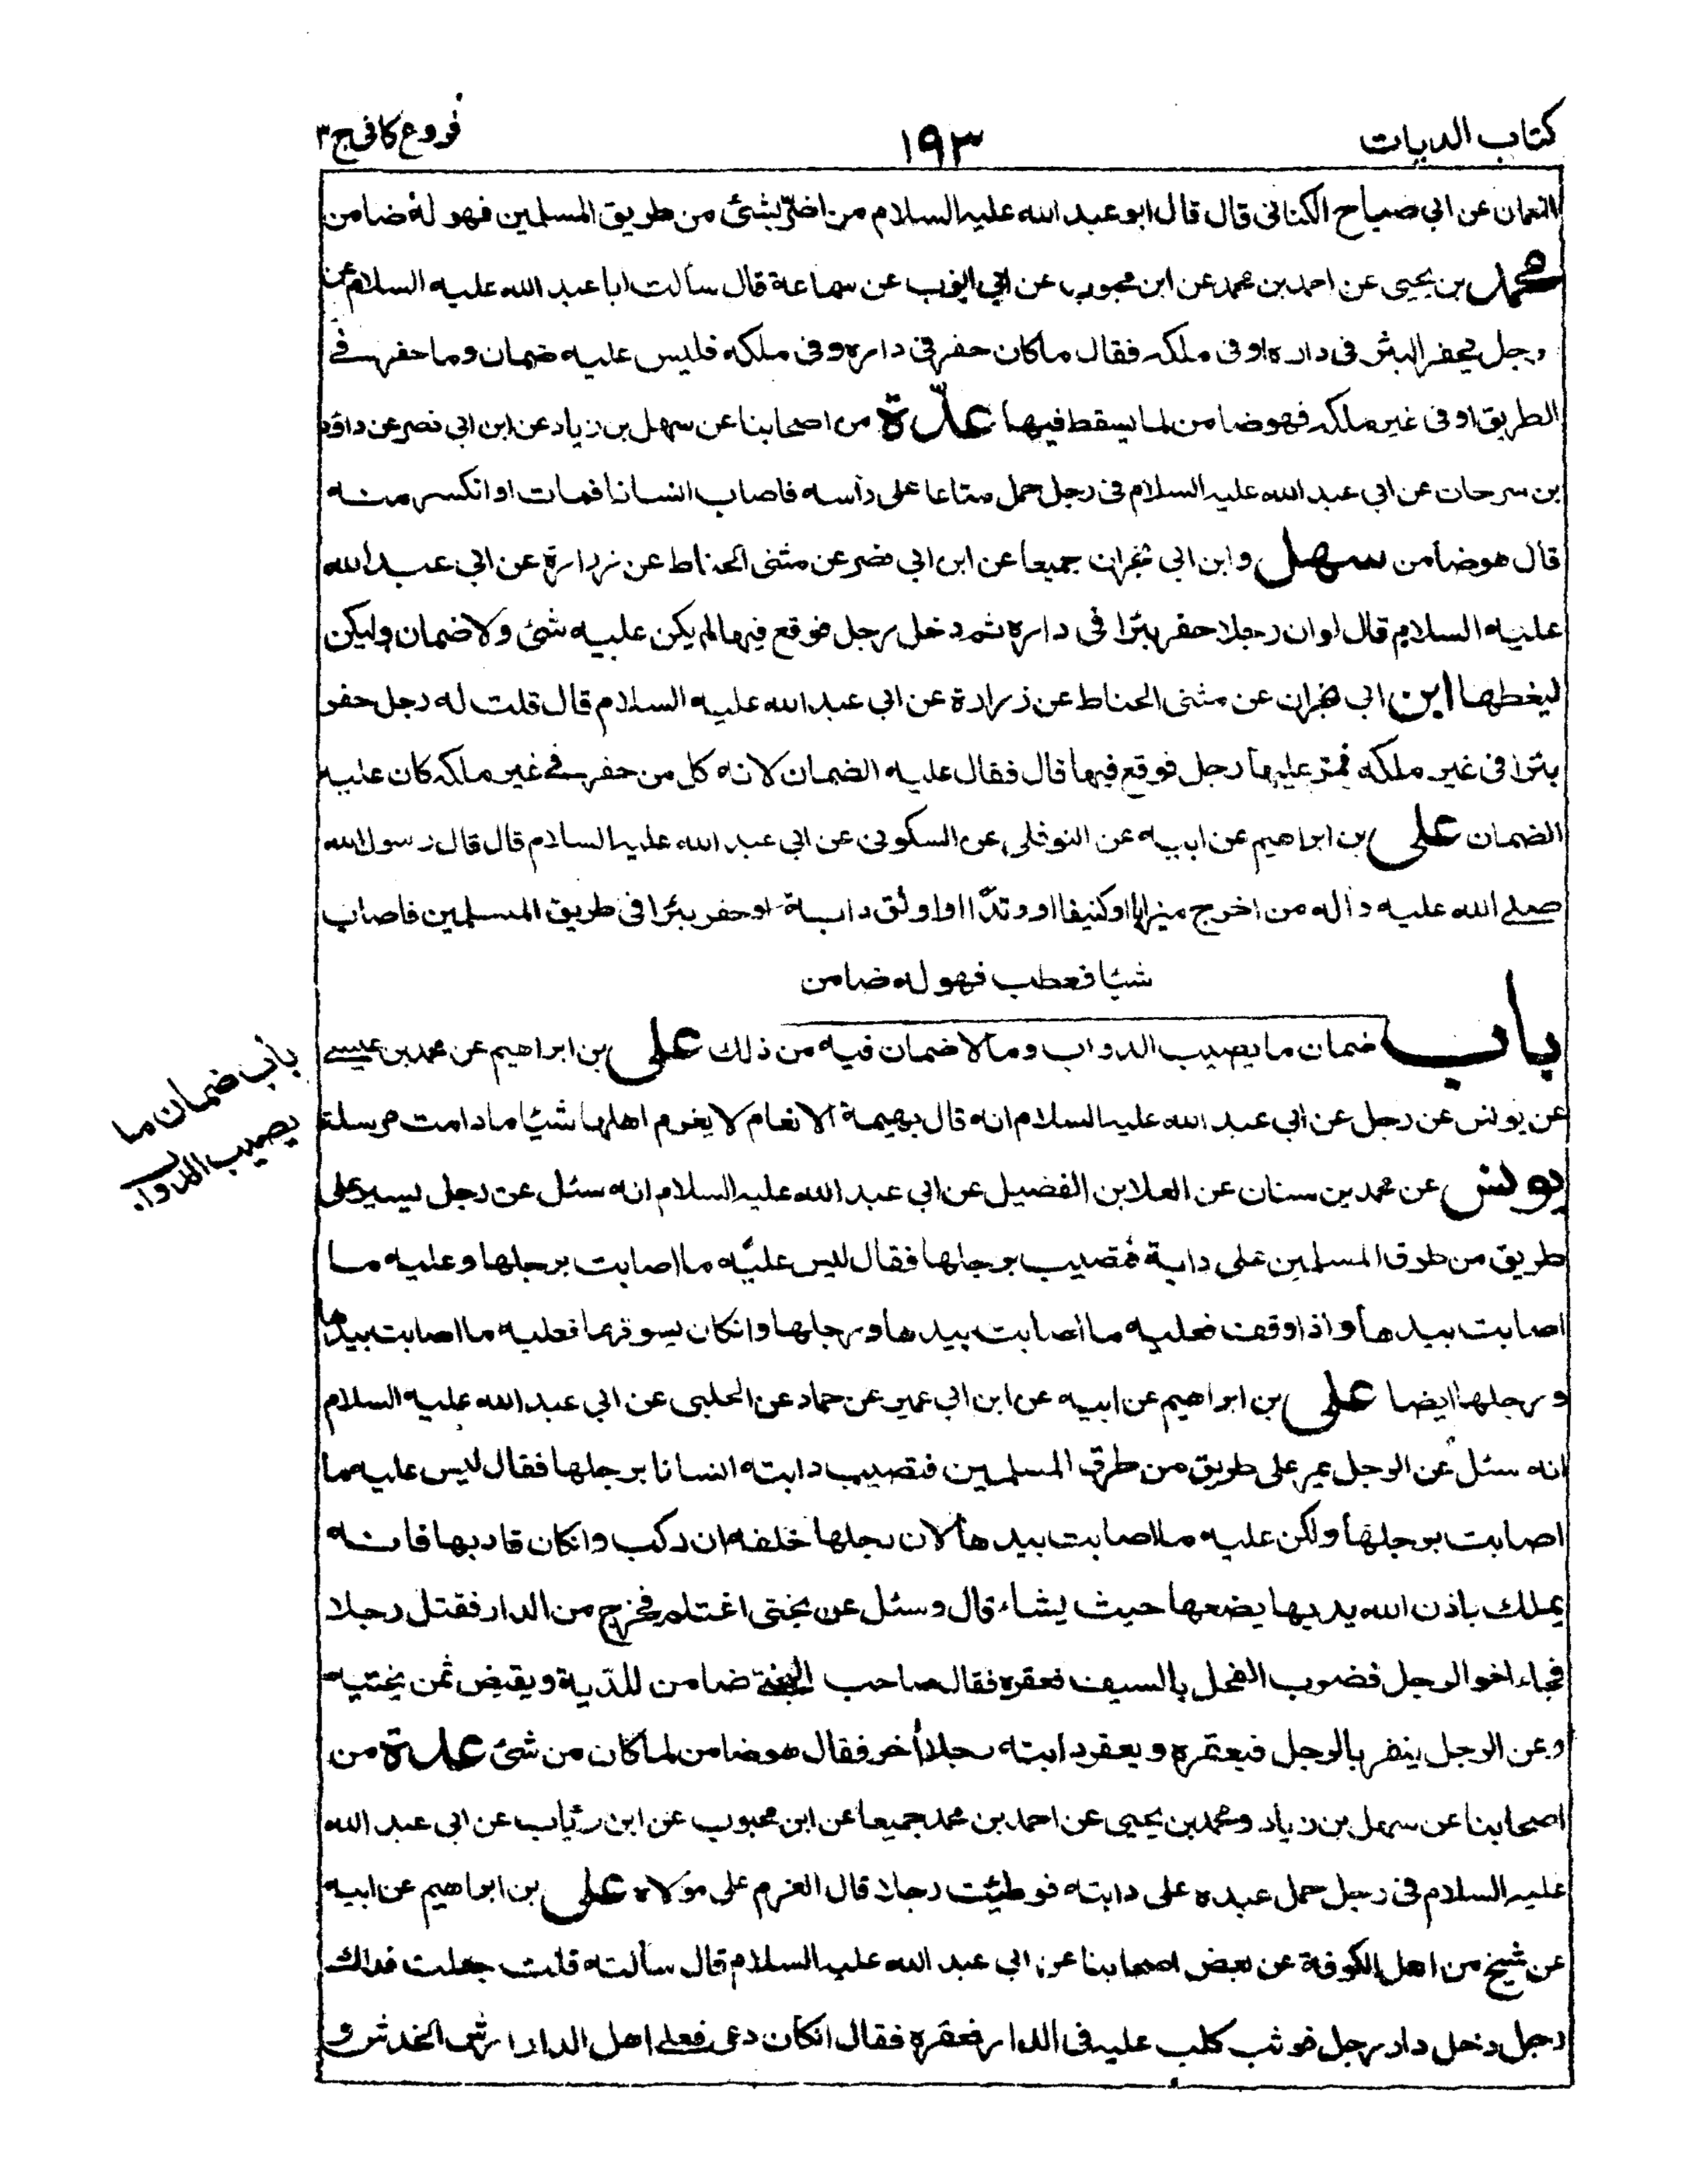 كتاب الديات
١٩٣
فروع كافى ج ٣
النعمان عن ابي صباح الكنانى قال قال ابو عبد الله عليه السلام من اضرّ بشئ من طريق المسلمين فهو لهٗ ضامن
محمد بن يحيى عن احمد بن محمد عن ابن محبوب عن ابي ايوب عن سماعة قال سألت ابا عبد الله عليه السلام عن
رجل يحفر البئر فى داره او فى ملكه فقال ما كان حفر فى داره وفى ملكه فليس عليه ضمان وما حفر فے
الطريق او فى غير ملكه فهو ضامن لما يسقط فيها عدّة من اصحابنا عن سهل بن زياد عن ابن ابي نصر عن داؤد
بن سرحان عن ابي عبد الله عليه السلام فى رجل حمل متاعا على رأسه فاصاب انسانا فمات او انكسر منه
قال هو ضامن سهل وابن ابي نجران جميعا عن ابن ابي نصر عن مثنى الحناط عن زرارة عن ابي عبد الله
عليه السلام قال لو ان رجلا حفر بئرا فى داره ثم دخل رجل فوقع فيها لم يكن عليه شئ ولا ضمان وليكن
ليغطها ابن ابي نجران عن مثنى الحناط عن زرارة عن ابي عبد الله عليه السلام قال قلت له رجل حفر
بئرا فى غير ملكه فمر عليها رجل فوقع فيها قال فقال عليه الضمان لانه كل من حفر فے غير ملكه كان عليه
الضمان على بن ابراهيم عن ابيه عن النوفلى عن السكونى عن ابي عبد الله عليه السلام قال قال رسول الله
صلے الله عليه وآله من اخرج ميزابا او كنيفا او وتدًا او اوثق دابة او حفر بئرا فى طريق المسلمين فاصاب
شيئا فعطب فهو له ضامن
باب ضمان ما يصيب الدواب وما لا ضمان فيه من ذلك على بن ابراهيم عن محمد بن عيسے
باب ضمان ما
يصيب الدواب
عن يونس عن رجل عن ابي عبد الله عليه السلام انه قال بهيمة الانعام لا يغرم اهلها شيئا ما دامت مرسلة
يونس عن محمد بن سنان عن العلا بن الفضيل عن ابي عبد الله عليه السلام انه سئل عن رجل يسير على
طريق من طرق المسلمين على دابة فتصيب برجلها فقال ليس عليه ما اصابت برجلها وعليه ما
اصابت بيدها واذا وقفت فعليه ما اصابت بيدها ورجلها وانكان يسوقها فعليه ما اصابت بيدها
ورجلها ايضا على بن ابراهيم عن ابيه عن ابن ابي عمير عن حماد عن الحلبى عن ابي عبد الله عليه السلام
انه سئل عن الرجل يمر على طريق من طرق المسلمين فتصيب دابته انسانا برجلها فقال ليس عليه ما
اصابت برجلها ولكن عليه ما اصابت بيدها لان رجلها خلفه ان ركب وانكان قاد بها فانه
يملك باذن الله يديها يضعها حيث يشاء قال وسئل عن بختى اغتلم فخرج من الدار فقتل رجلا
فجاء اخو الرجل فضرب الفحل بالسيف فعقره فقال صاحب البختى ضامن للدية ويقبض ثمن بختيه
وعن الرجل ينفر بالرجل فيعقره ويعقر دابته رجلا أخر فقال هو ضامن لما كان من شئ عدة من
اصحابنا عن سهل بن زياد ومحمد بن يحيى عن احمد بن محمد جميعا عن ابن محبوب عن ابن رئاب عن ابي عبد الله
عليه السلام فى رجل حمل عبده على دابته فوطئت رجلا قال الغرم على مولاه على بن ابراهيم عن ابيه
عن شيخ من اهل الكوفة عن بعض اصحابنا عن ابي عبد الله عليه السلام قال سألته قلت جعلت فداك
رجل دخل دار رجل فوثب كلب عليه فى الدار فعقره فقال انكان دعى فعلے اهل الدار ارش الخدش و